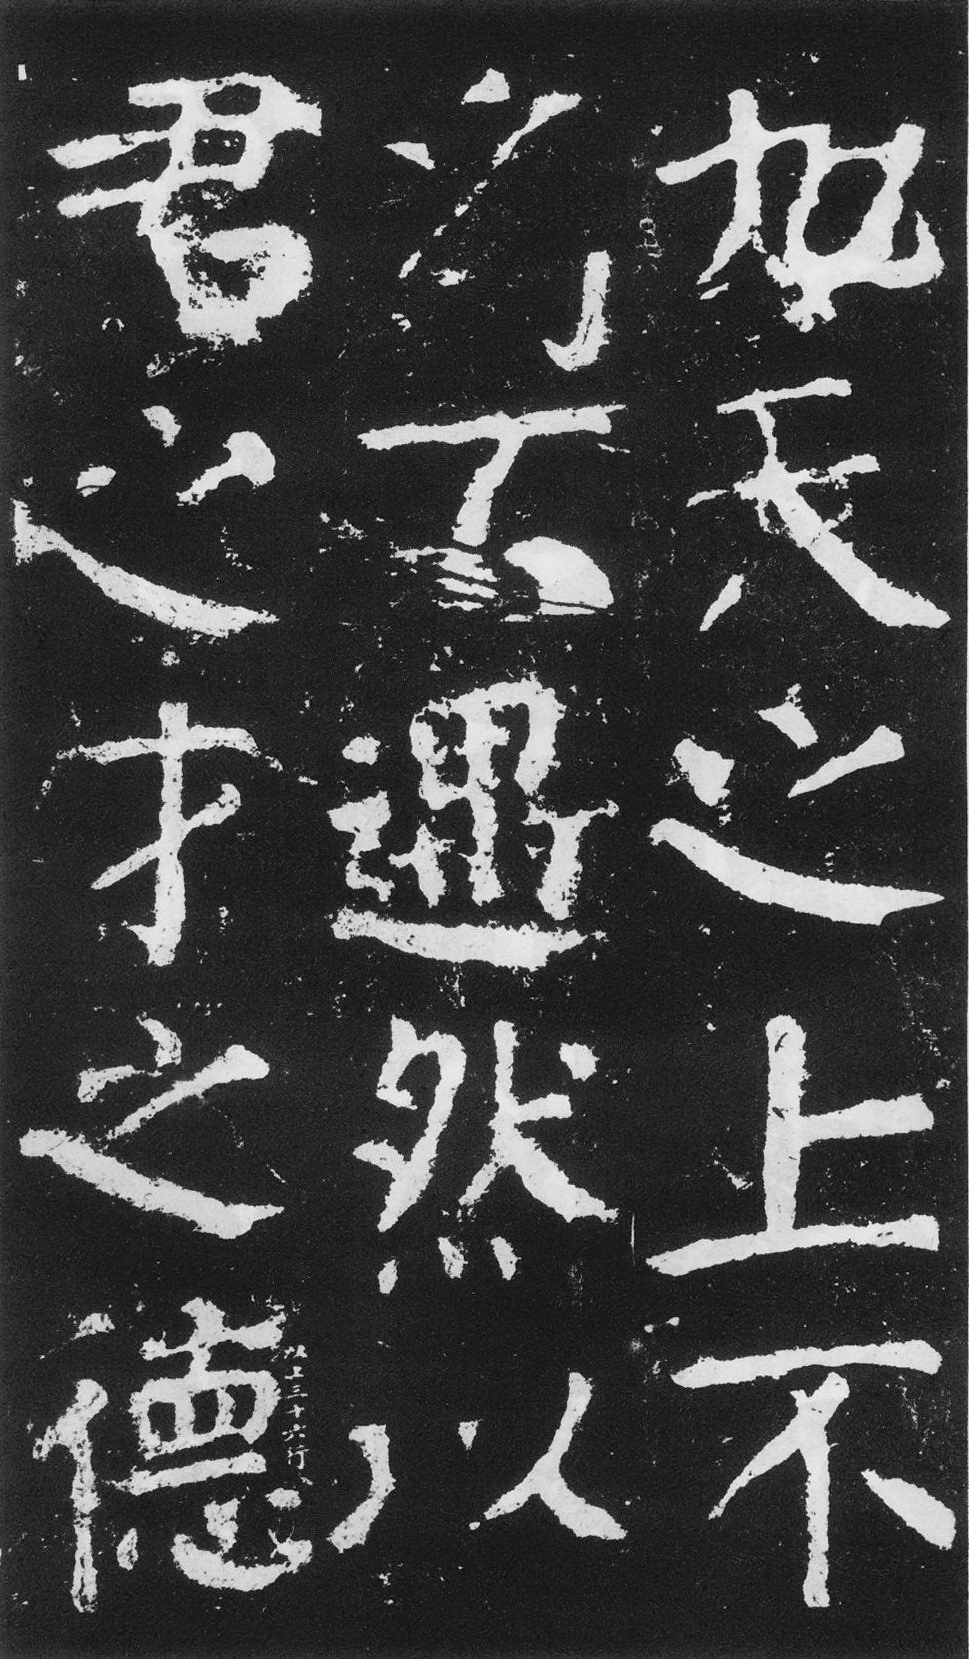 天之上不
為不遇然以
君之才之德
以上三十六行